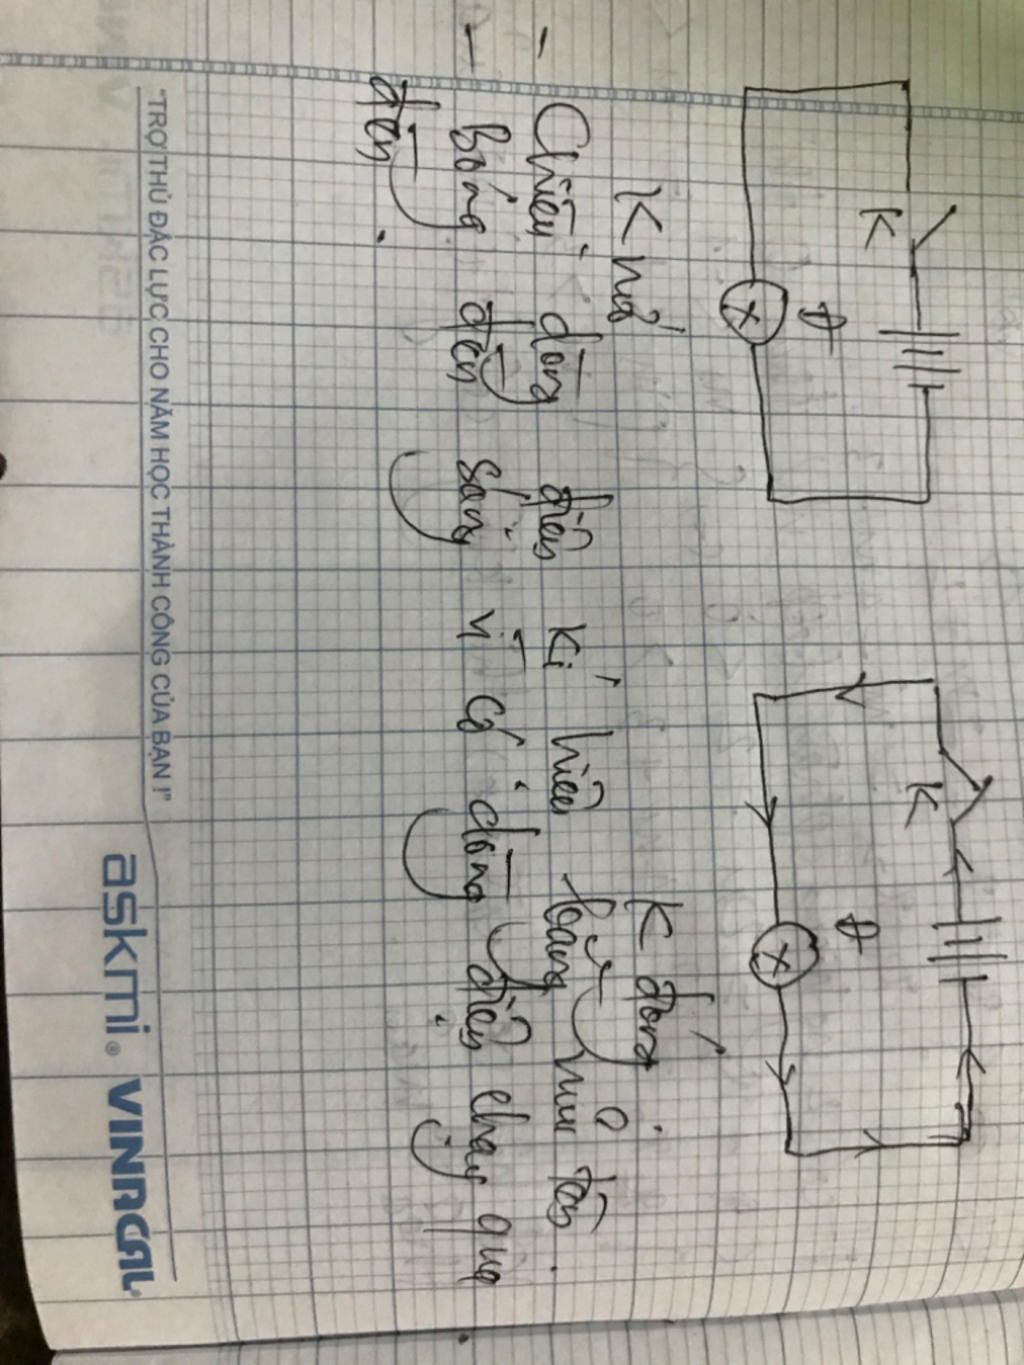 K
Đ
K
Đ
K mở
K đóng
- Chiều dòng điện kí hiệu bằng mũi tên.
- Bóng đèn sáng vì có dòng điện chạy qua
đèn.
"TRỢ THỦ ĐẮC LỰC CHO NĂM HỌC THÀNH CÔNG CỦA BẠN !"
askmi. VINACAL